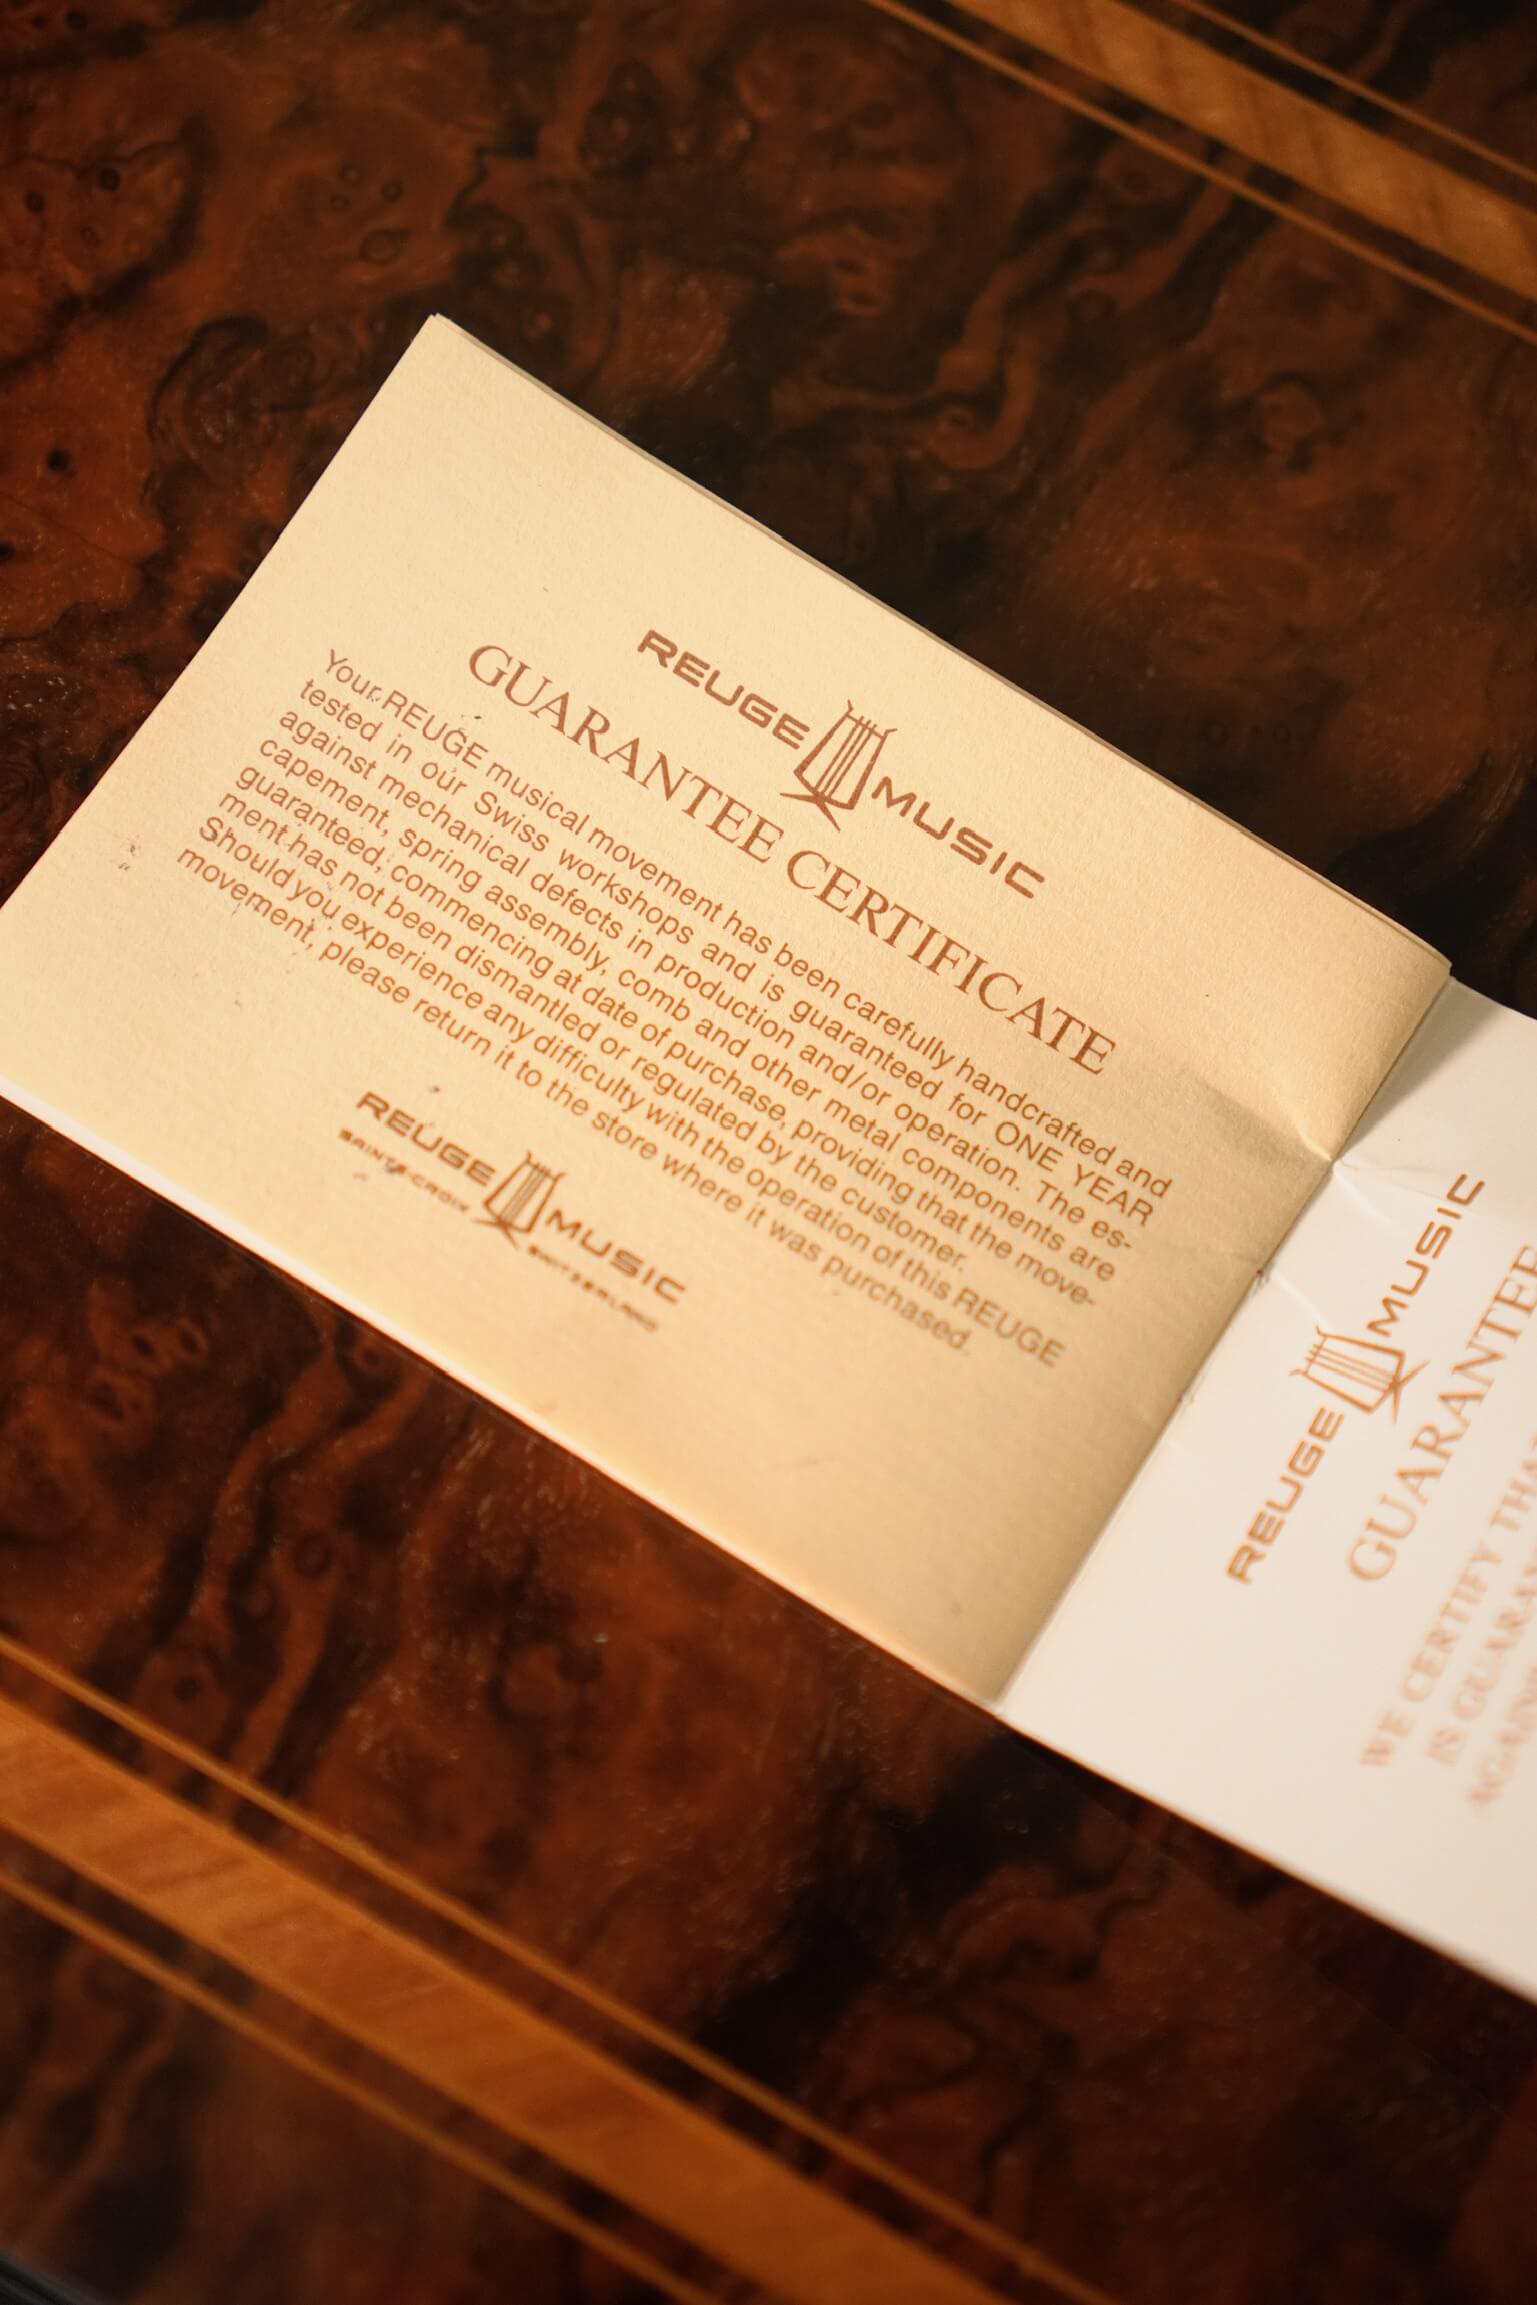 REUGE MUSIC
GUARANTEE CERTIFICATE
Your REUGE musical movement has been carefully handcrafted and
tested in our Swiss workshops and is guaranteed for ONE YEAR
against mechanical defects in production and/or operation. The es-
capement, spring assembly, comb and other metal components are
guaranteed, commencing at date of purchase, providing that the move-
ment has not been dismantled or regulated by the customer.
Should you experience any difficulty with the operation of this REUGE
movement, please return it to the store where it was purchased.
REUGE MUSIC
SAINTE-CROIX SWITZERLAND
REUGE MUSIC
GUARANTEE
WE CERTIFY
IS